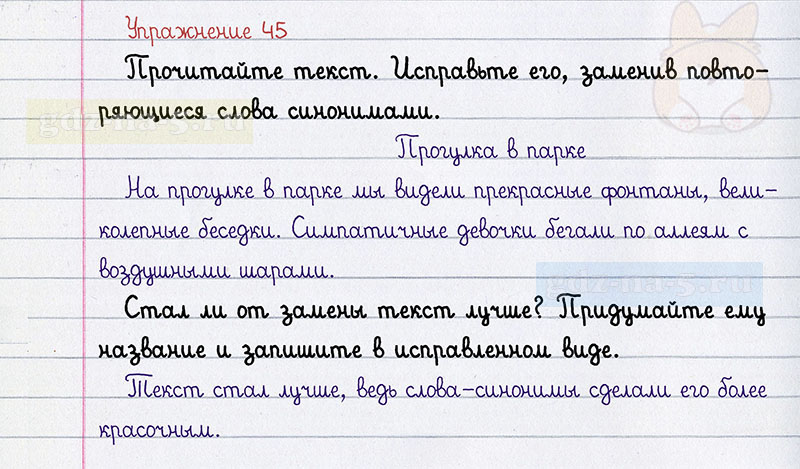 Упражнение 45
Прочитайте текст. Исправьте его, заменив повто-
ряющиеся слова синонимами.
gdz-na-5.ru
Прогулка в парке
На прогулке в парке мы видели прекрасные фонтаны, вели-
колепные беседки. Симпатичные девочки бегали по аллеям с
воздушными шарами.
gdz-na-5.ru
Стал ли от замены текст лучше? Придумайте ему
название и запишите в исправленном виде.
Текст стал лучше, ведь слова-синонимы сделали его более
красочным.